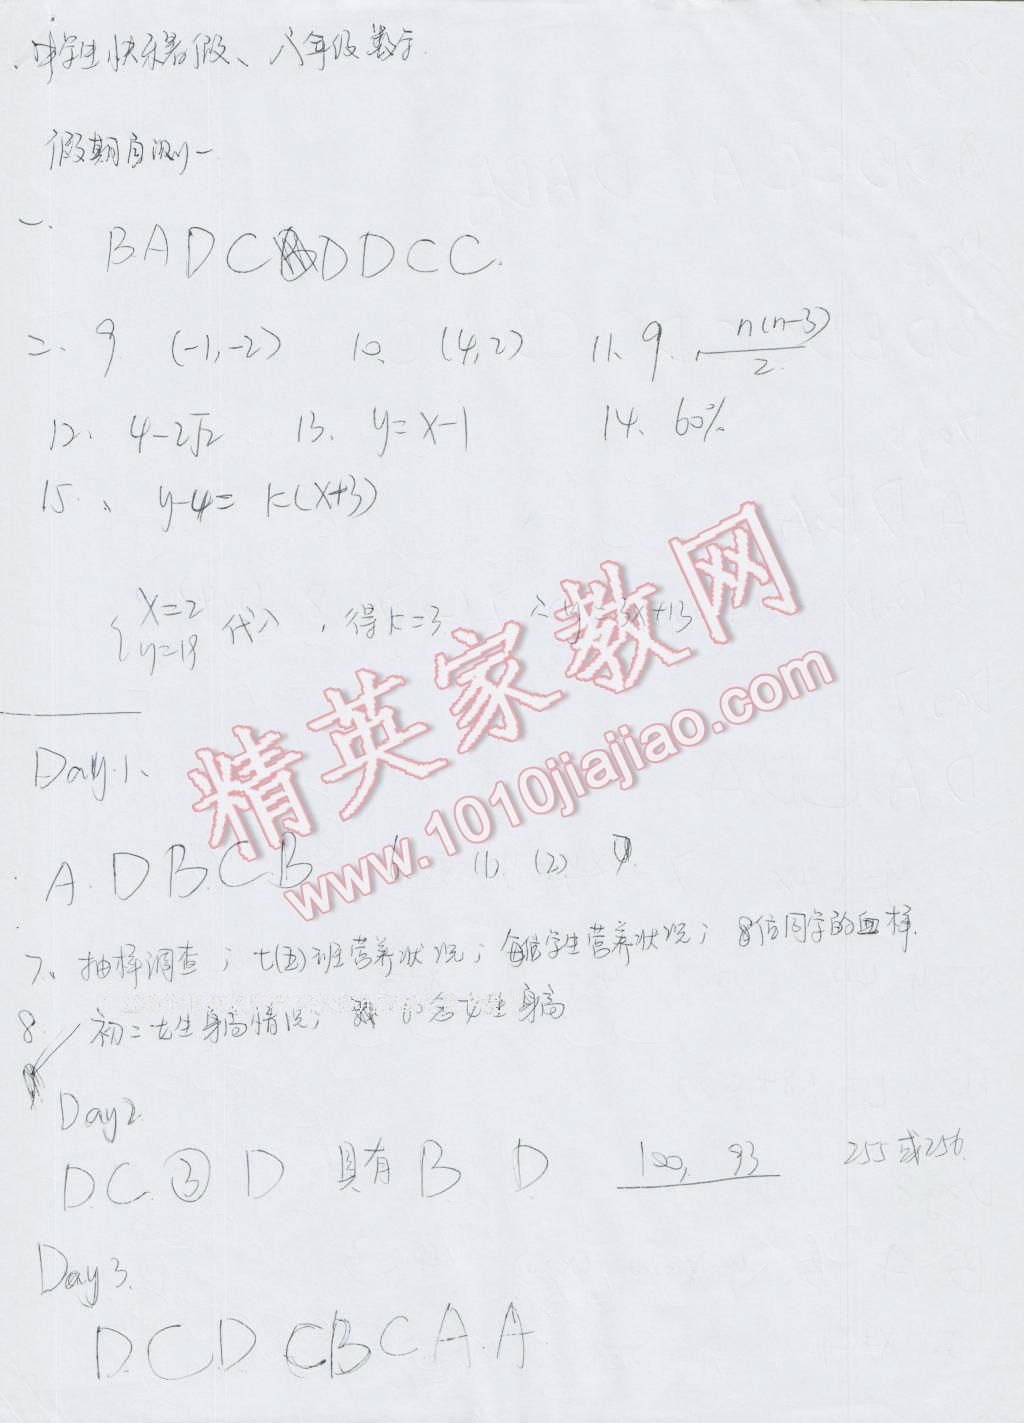 中学生快乐暑假、八年级数学.
假期自测一
一、
BADCADDCC.
二、9. (-1,-2) 10、 (4,2) 11、9. , n(n-3)/2
12、 4-2√2 13. y=x-1 14、60%
15、 y-4=k(x+3)
{x=2 y=19 代入,得k=3 ∴y=3x+13
精英家教网
www.1010jiajiao.com
Day.1、
A.DB.CB (1). (2)
7、抽样调查;七(五)班营养状况;每位学生营养状况;8位同学的血样.
8. 初二女生身高情况; 名女生身高
Day2.
D.C.③D 具有B D 100, 93 255或256.
Day3.
D.C.D CBCA.A